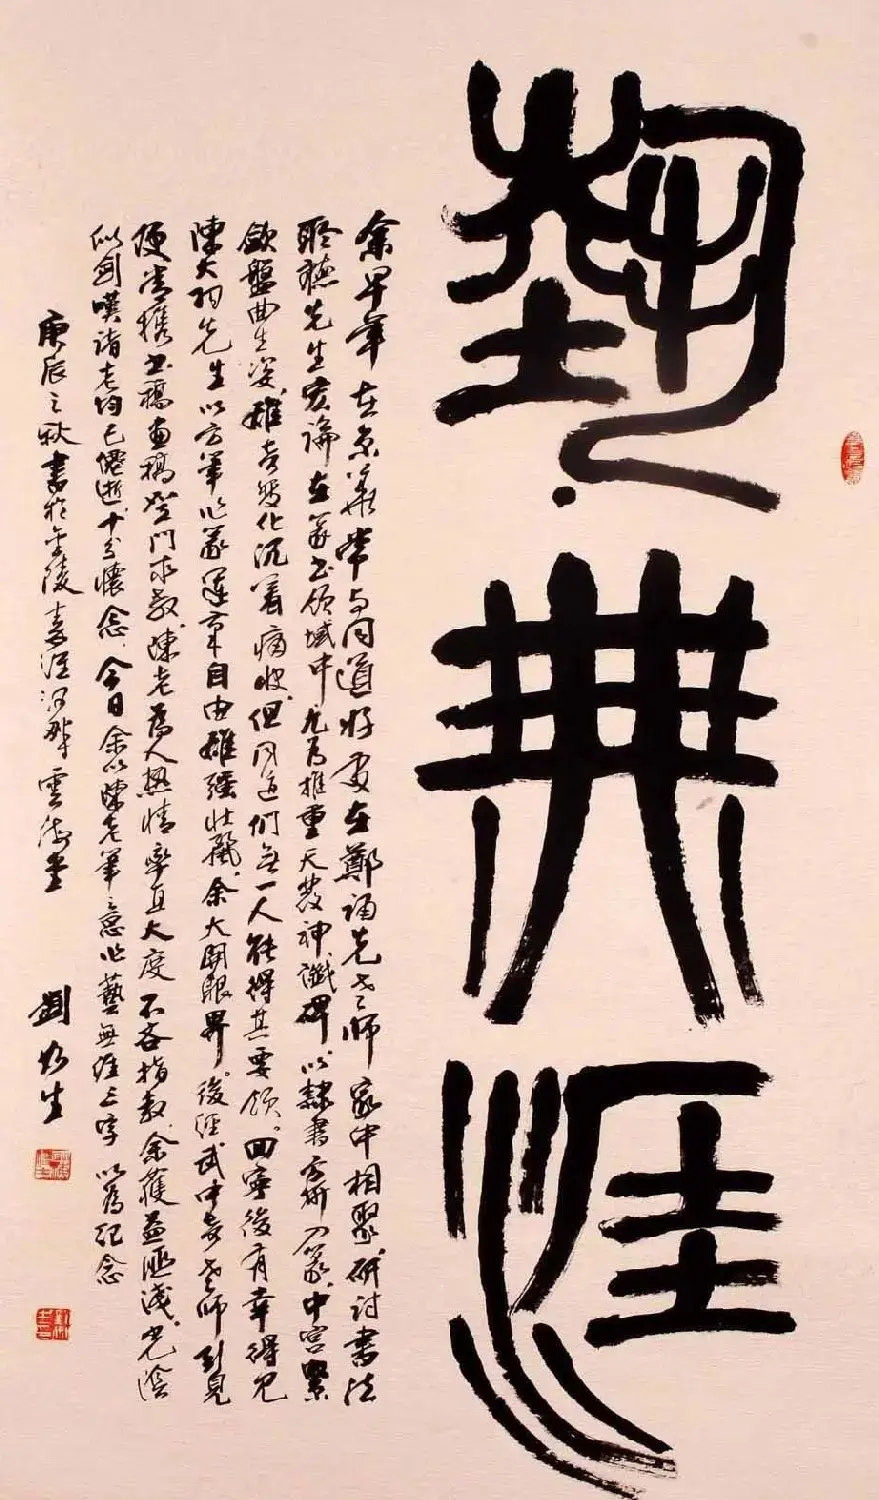 藝無涯
余早年在京華常与同道好友在鄭誦先老師家中相聚研討書法
聆聽先生宏論在篆书领域中尤为推重天發神讖碑以隸書方折入篆中宮緊
歛盤曲生姿雄奇变化沉着痛快但同道们無一人能得其要领回寧後有幸得見
陳大羽先生以方筆作篆運筆自由雄强壮觀余大開眼界後經武中奇老师引見
便常携书稿画稿登門求教陳老为人热情率直大度不吝指教余获益匪浅光陰
似劍嘆诸老均已僊逝十分懷念今日余以陳老筆意作藝無涯三字以为纪念
庚辰之秋書於金陵秦淮河畔雲海堂
劉灿生